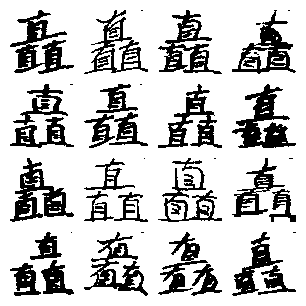 矗矗矗矗
矗矗矗矗
矗矗矗矗
矗矗矗矗